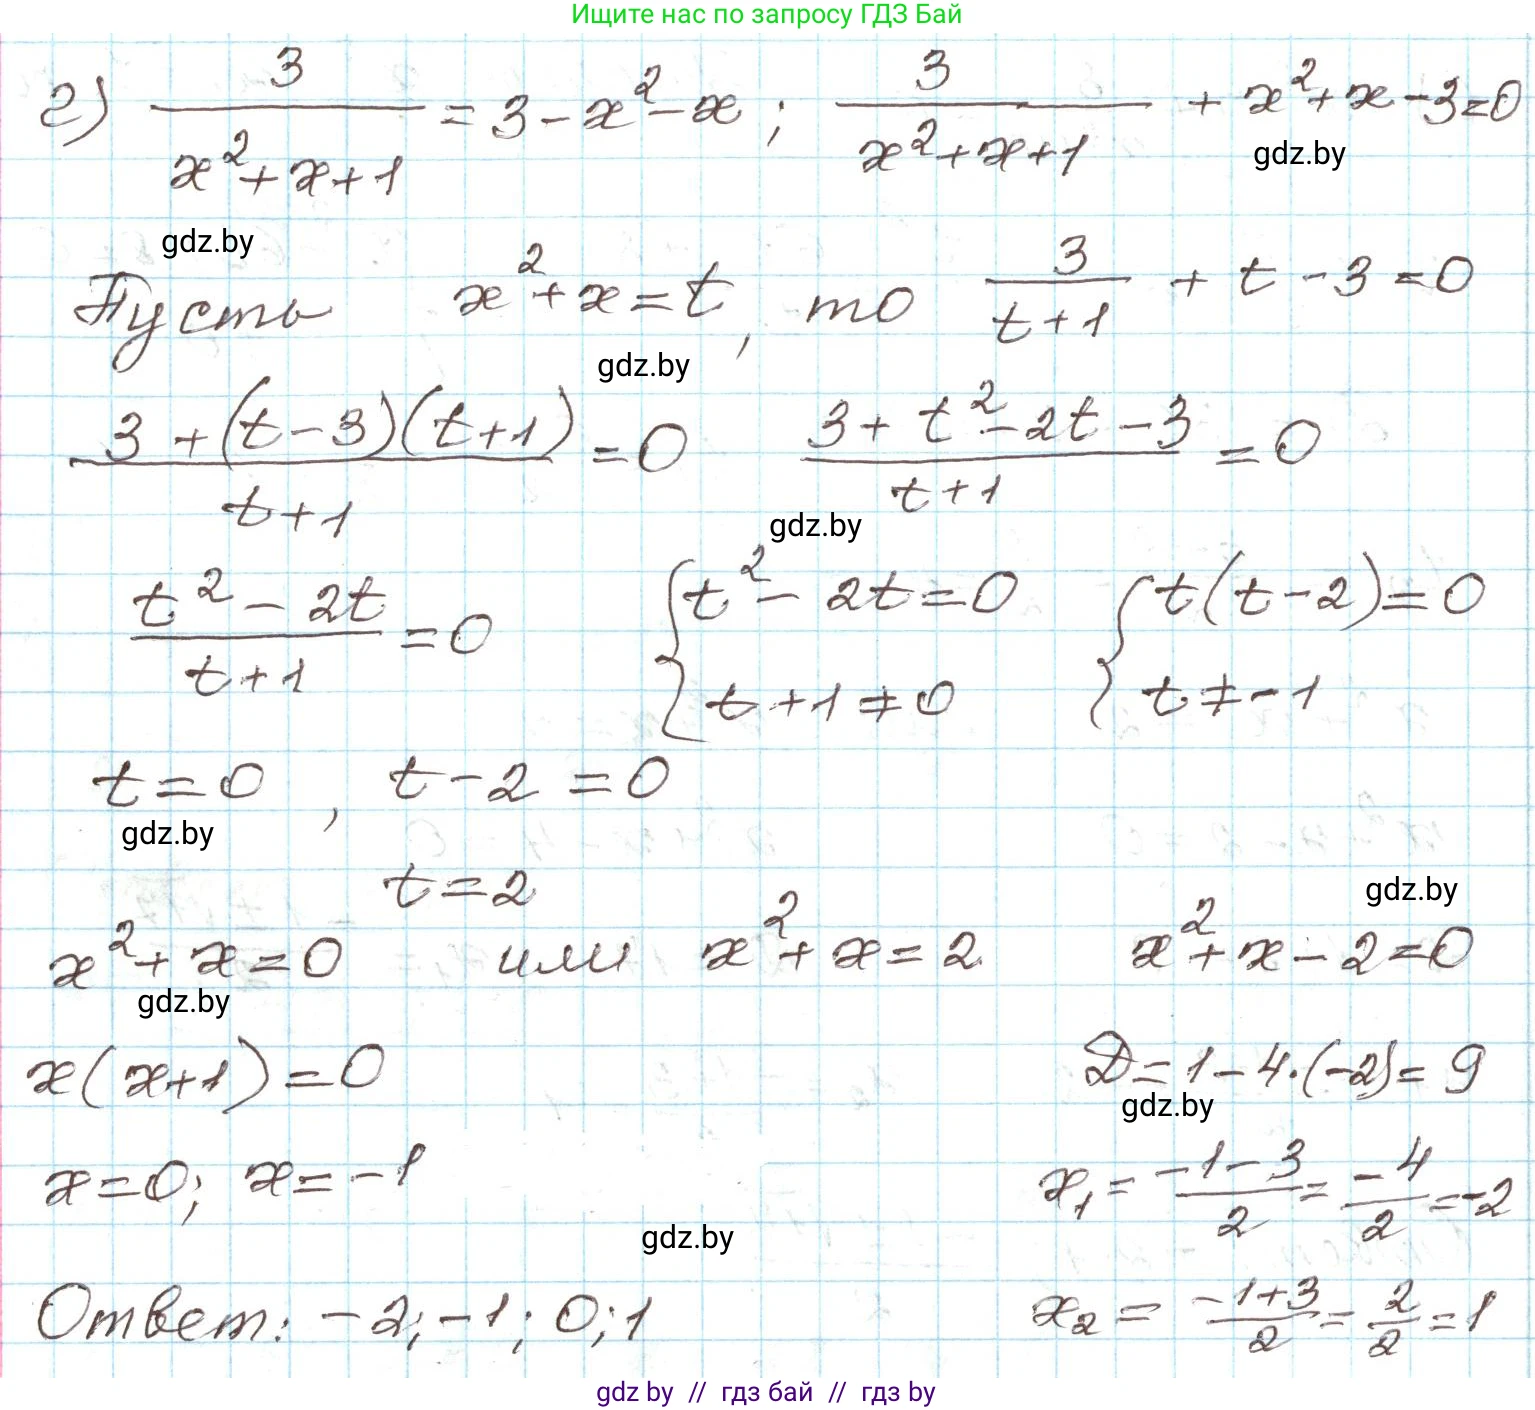 Ищите нас по запросу ГДЗ Бай
г) 3/(x²+x+1) = 3-x²-x; 3/(x²+x+1) + x²+x-3=0
gdz.by
gdz.by
Пусть x²+x=t, то 3/(t+1) + t-3=0
gdz.by
(3+(t-3)(t+1))/(t+1) = 0 (3+t²-2t-3)/(t+1) = 0
gdz.by
(t²-2t)/(t+1) = 0 { t²-2t=0 { t(t-2)=0
t+1≠0 t≠-1
t=0, t-2=0
gdz.by
t=2
gdz.by
x²+x=0 или x²+x=2 x²+x-2=0
gdz.by
x(x+1)=0 D=1-4·(-2)=9
gdz.by
x=0; x=-1 x₁=(-1-3)/2=-4/2=-2
gdz.by
Ответ: -2; -1; 0; 1 x₂=(-1+3)/2=2/2=1
gdz by // гдз бай // gdz by